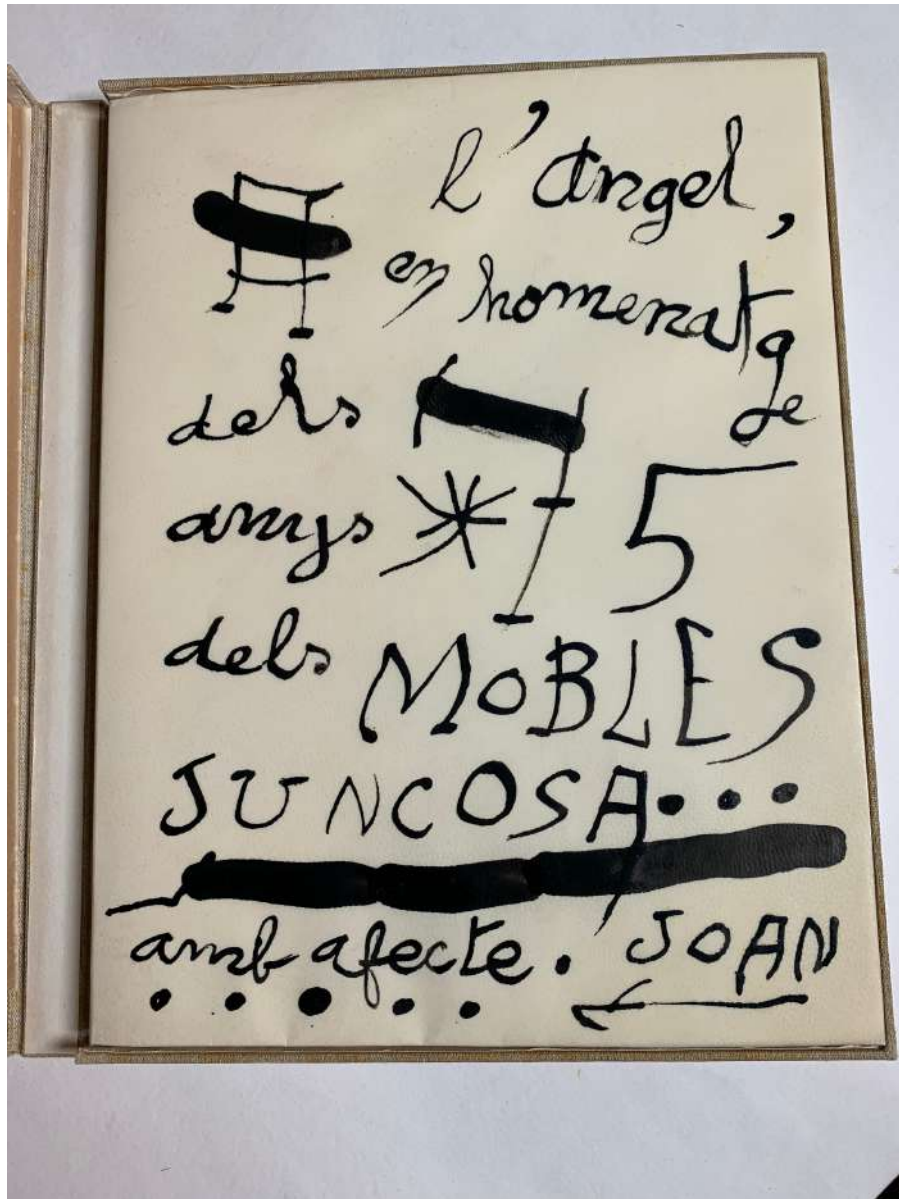 A l'Angel,
en homenatge
dels
anys 75
dels MOBLES
JUNCOSA...
amb afecte. JOAN